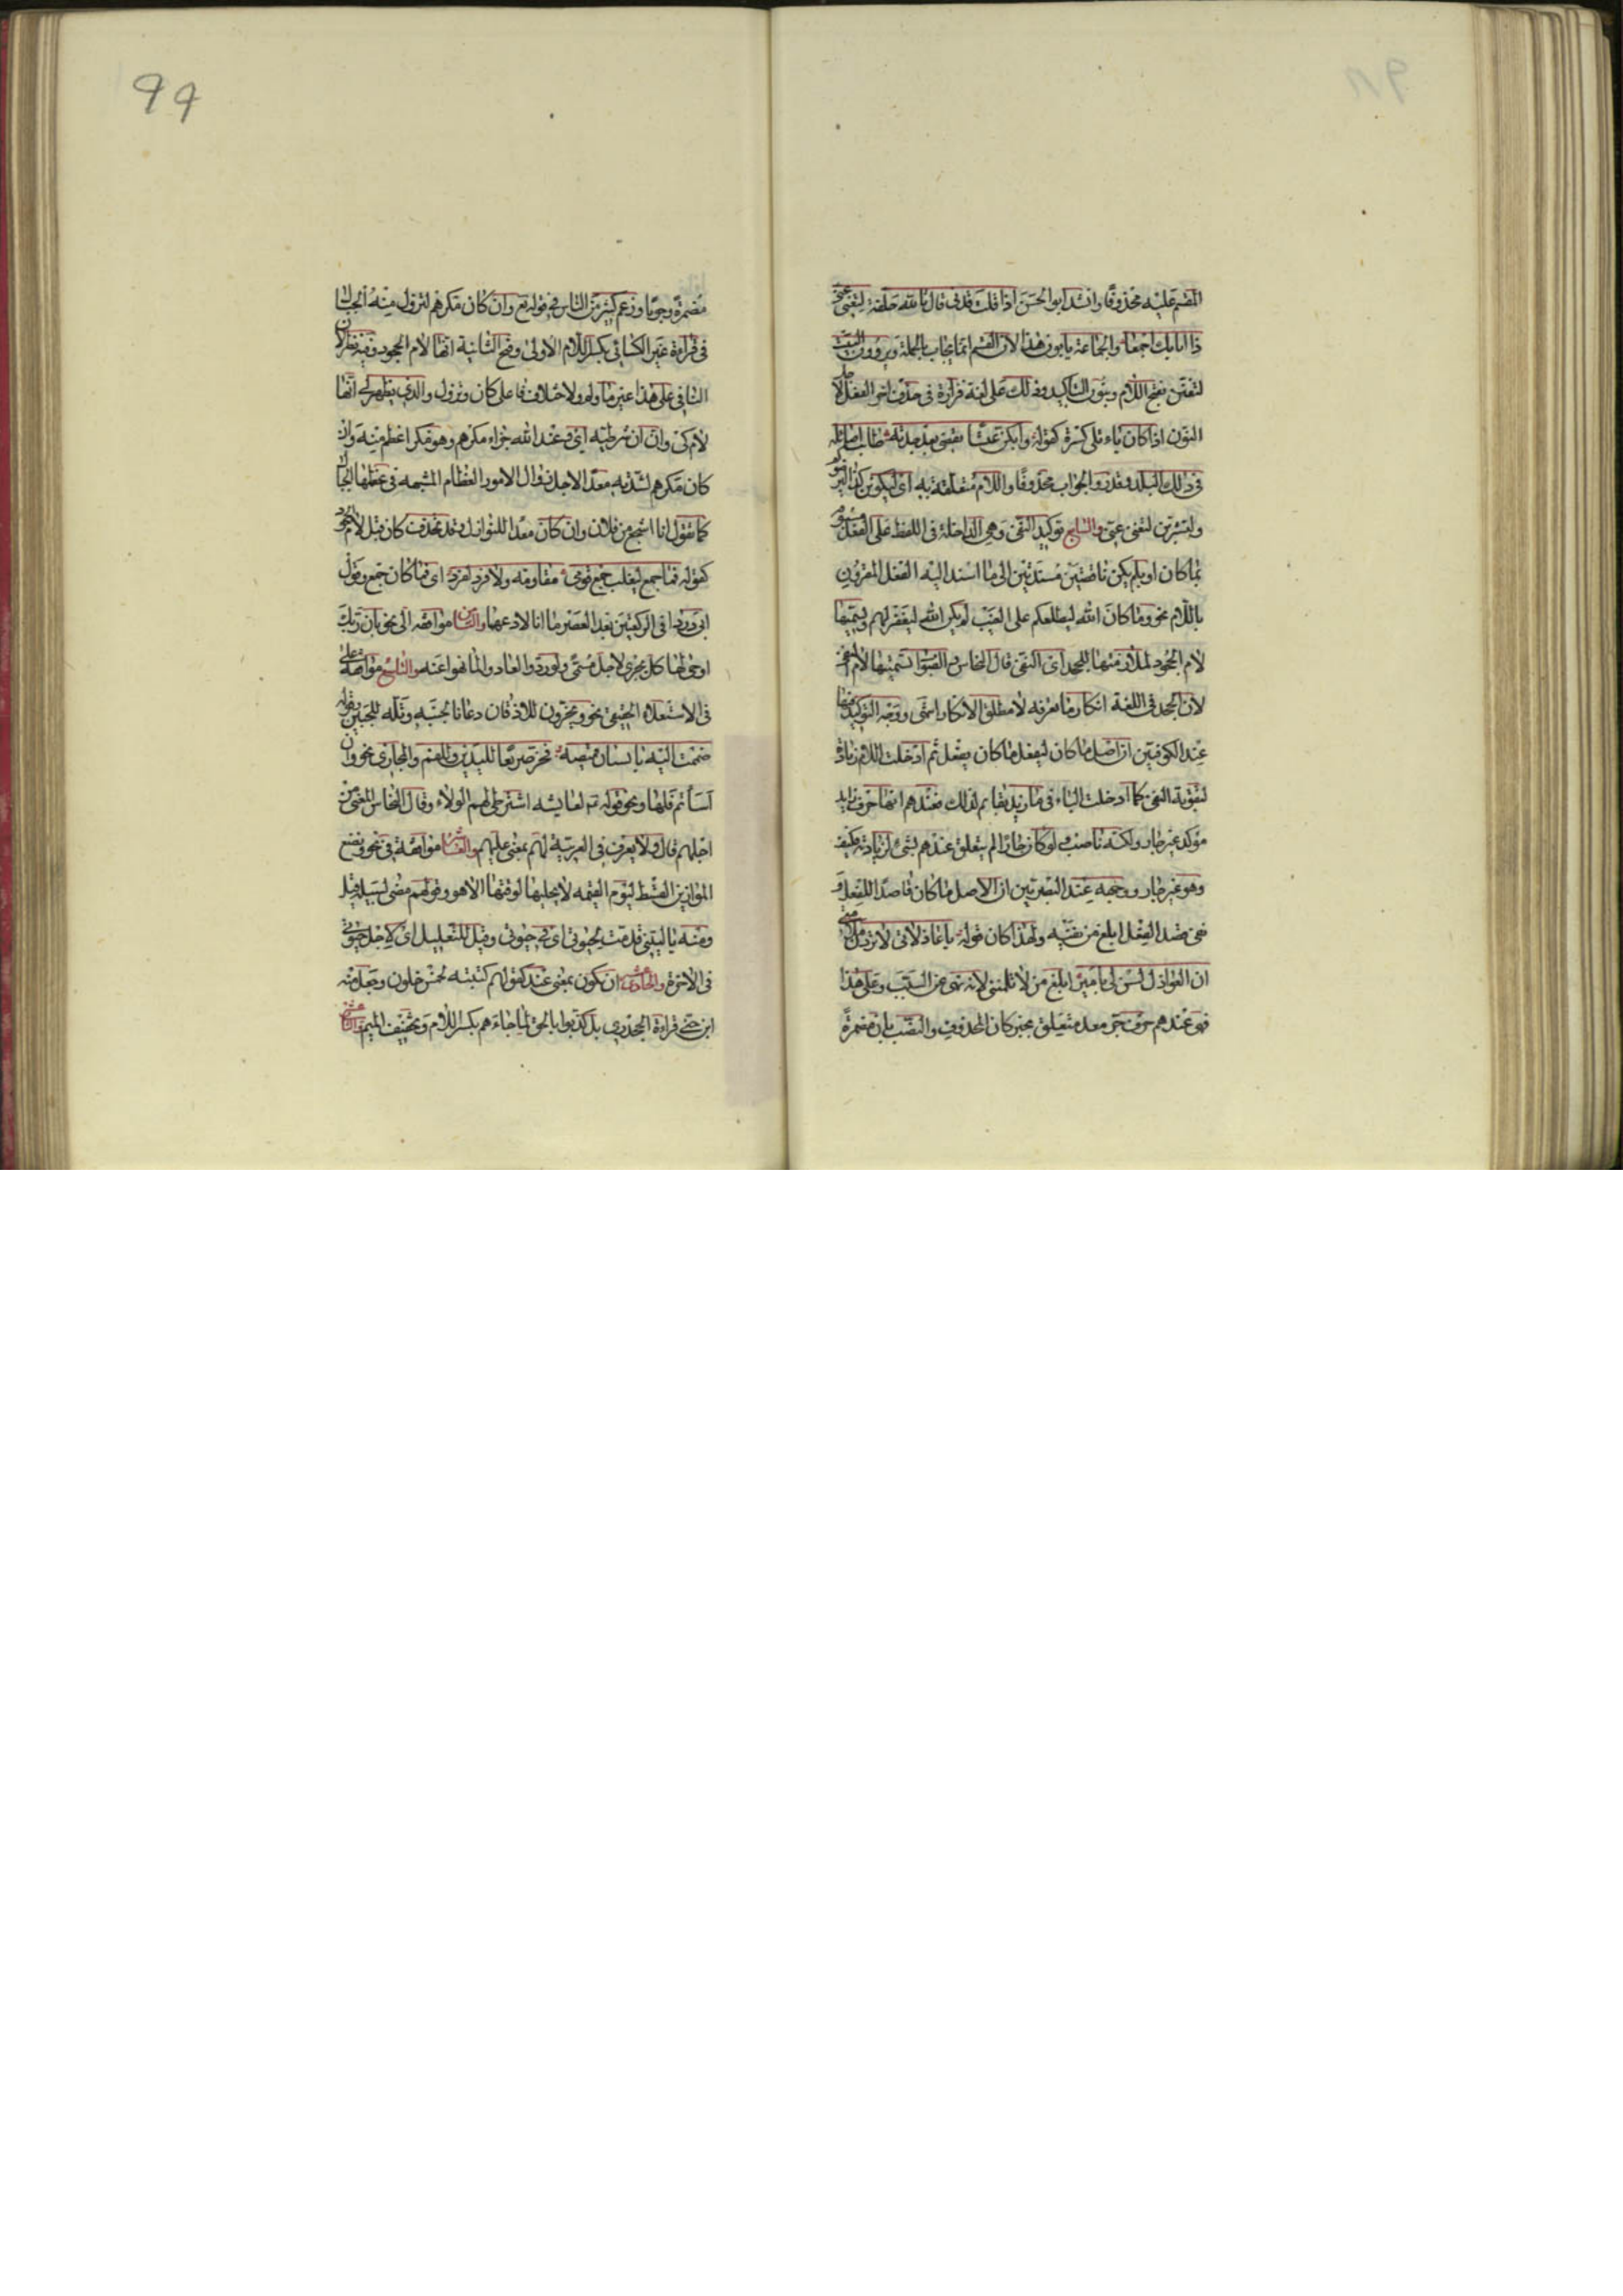 المقسم عليه محذوفا وانشد ابو الحسن اذا قلت قدنى قال بالله حلفة لتغنى عنى
ذا انائك اجمعا والجماعة يابون هذا لان القسم انما يجاب بالجملة ويروون البيت
لتغنن بفتح اللام ونون التاكيد وذلك على لغة فزارة فى حذف اخر الفعل لاجل
النون اذا كان ياء تلى كسرة كقوله وابكن عيشا تقضى بعد جدته طابت اصائله
فى ذلك البلد وقدروا الجواب محذوفا واللام متعلقة به اى ليكونن كذا ليرضوكم
ولتشربن لتغنى عنى والسابع توكيد النفى وهى الداخلة فى اللفظ على الفعل مسبوقة
بما كان او بلم يكن ناقصتين مسندتين الى ما اسند اليه الفعل المقرون
باللام نحو وما كان الله ليطلعكم على الغيب لم يكن الله ليغفر لهم ويسميها
لام الجحود لملازمتها للجحد اى النفى قال النحاس والصواب تسميتها لام النفى
لان الجحد فى اللغة انكار ما تعرفه لا مطلق الانكار انتهى ووجه التوكيد فيها
عند الكوفيين ان اصل ما كان ليفعل ما كان يفعل ثم ادخلت اللام زيادة
لتقوية النفى كما ادخلت الباء فى ما زيد بقايم لذلك فعندهم انها حرف زايد
موكد غير جار ولكنه ناصب ولو كان جارا لم يتعلق عندهم بشىء لزيادته فكيف
وهو غير جار ووجهه عند البصريين ان الاصل ما كان قاصدا للفعل و
نفى قصد الفعل ابلغ من نفيه ولهذا كان قوله يا عاذلاتى لا تردن ملامتى
ان العواذل لسن لى بامير ابلغ من لا تلمننى لانه نهى عن السبب وعلى هذا
فهى عندهم حرف جر معد متعلق بخبر كان المحذوف والنصب بان مضمرة
99
مضمرة وجوبا وزعم كثير من الناس فى قوله تع وان كان مكرهم لتزول منه الجبال
فى قراءة غير الكسائى بكسر اللام الاولى وفتح الثانية انها لام الجحود وفيه نظر لان
النافى على هذا غير ما ولم ولاختلاف فاعلى كان وتزول والذى يظهر لى انها
لام كى وان ان شرطيه اى وعند الله جزاء مكرهم وهو مكر اعظم منه وان
كان مكرهم لشدته معدا لاجل زوال الامور العظام المشبهه فى عظمها بالجبال
كما تقول انا اشجع من فلان وان كان معدا للنوازل وقد تحذف كان قبل لام الجحود
كقوله فما جمع ليغلب جمع قومى مقاومة ولا فرد لفرد اى فما كان جمع وقول
ابى درداء فى الركعتين بعد العصر ما انا لادعهما والثامن موافقه الى نحو بان ربك
اوحى لها كل يجرى لاجل مسمى ولو ردوا لعادوا لما نهوا عنه والتاسع موافقة على
فى الاستعلاء الحقيقى نحو ويخرون للاذقان دعانا لجنبه وتله للجبين وقوله
ضممت اليه بالسنان قميصه فخر صريعا لليدين وللفم والمجازى نحو وان
اساتم فلها ونحو قوله تم لعايشه اشترطى لهم الولاء وقال النحاس المعنى من
اجلهم قال ولا يعرف فى العربية لهم بمعنى عليهم والعاشر موافقة فى نحو ونضع
الموازين القسط ليوم القيمه لا يجليها لوقتها الا هو وقولهم مضى لسبيله قيل
ومنه يا ليتنى قدمت لحيوتى اى فى حيوتى وقيل للتعليل اى لاجل حيوتى
فى الاخرة والحادى عشر ان تكون بمعنى عند كقولهم كتبته لخمس خلون وجعل منه
ابن جنى قراءة الجحدرى بل كذبوا بالحق لما جاءهم بكسر اللام وتخفيف الميم والثانى عشر